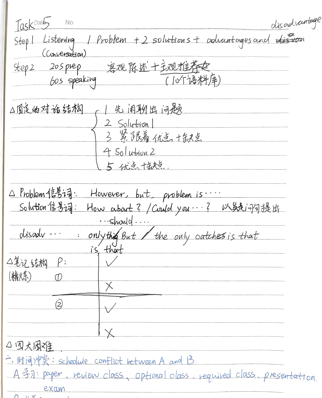 Task 5 No
disadvantage
Step1 Listening 1 Problem + 2 solutions + advantages and
(Conversation)
Step2 20s prep 客观陈述 + 主观推荐
60s speaking (10个语料库)
△固定的对话结构
1 先闲聊出问题
2 Solution1
3 紧跟着优点、缺点
4 Solution2
5 优点、缺点
△ Problem信号词: However, but, problem is ····
Solution信号词: How about? / Could you ···? 以疑问句提出
··· should ····
disadv ··· : only / But / the only catches is that
is that
△笔记结构 P: ✓
(精炼) ①
X
② ✓
X
△四大困难
一. 时间冲突: schedule conflict between A and B
A 学习: paper, review class, optional class, required class, presentation
exam